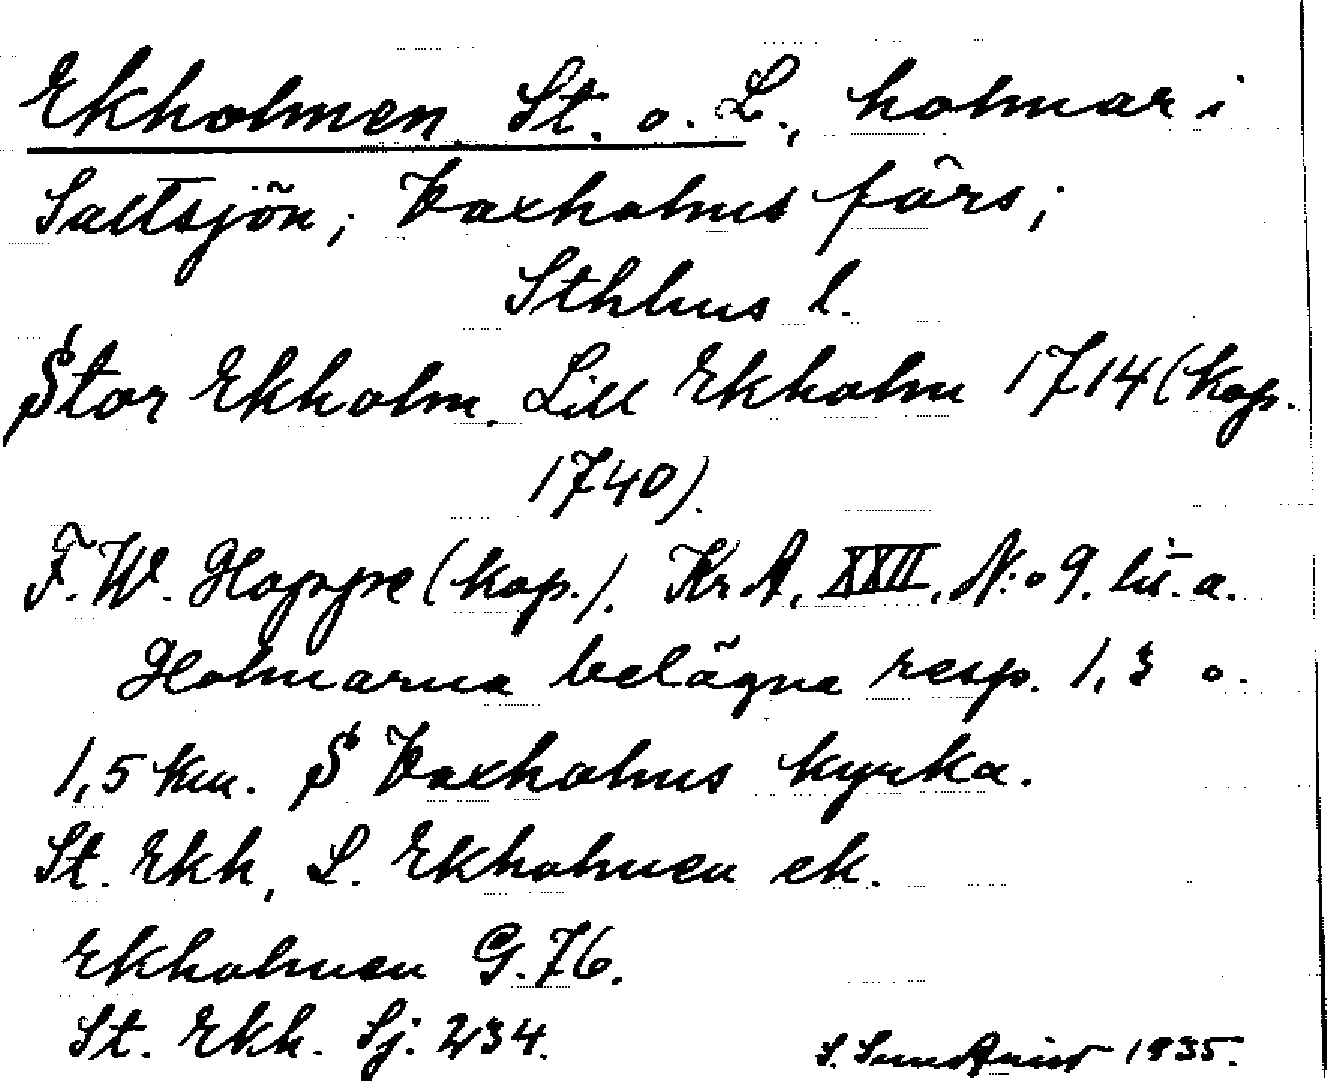 Ekholmen St. o. L., holmar i
Saltsjön; Vaxholms förs;
Sthlms l.
Stor Ekholm, Lill Ekholm 1714 (kop.
1740).
F. W. Hoppe (kop.). Kr A, XXII, N:o 9. lit. a.
Holmarna belägna resp. 1,3 o.
1,5 km. S Vaxholms kyrka.
St. Ekh, L. Ekholmen ek.
Ekholmen G. 76.
St. Ekh. Sj. 234.
S. Sundkvist 1935.